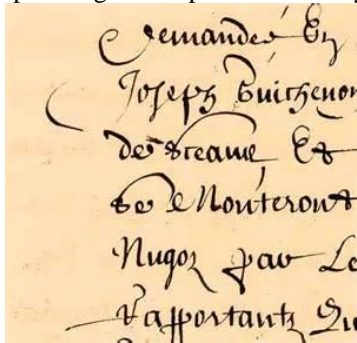 demandée En
Joseph Guichenon
de sceaue, Et
se Monteront
Par Le
Rapportantz Qu